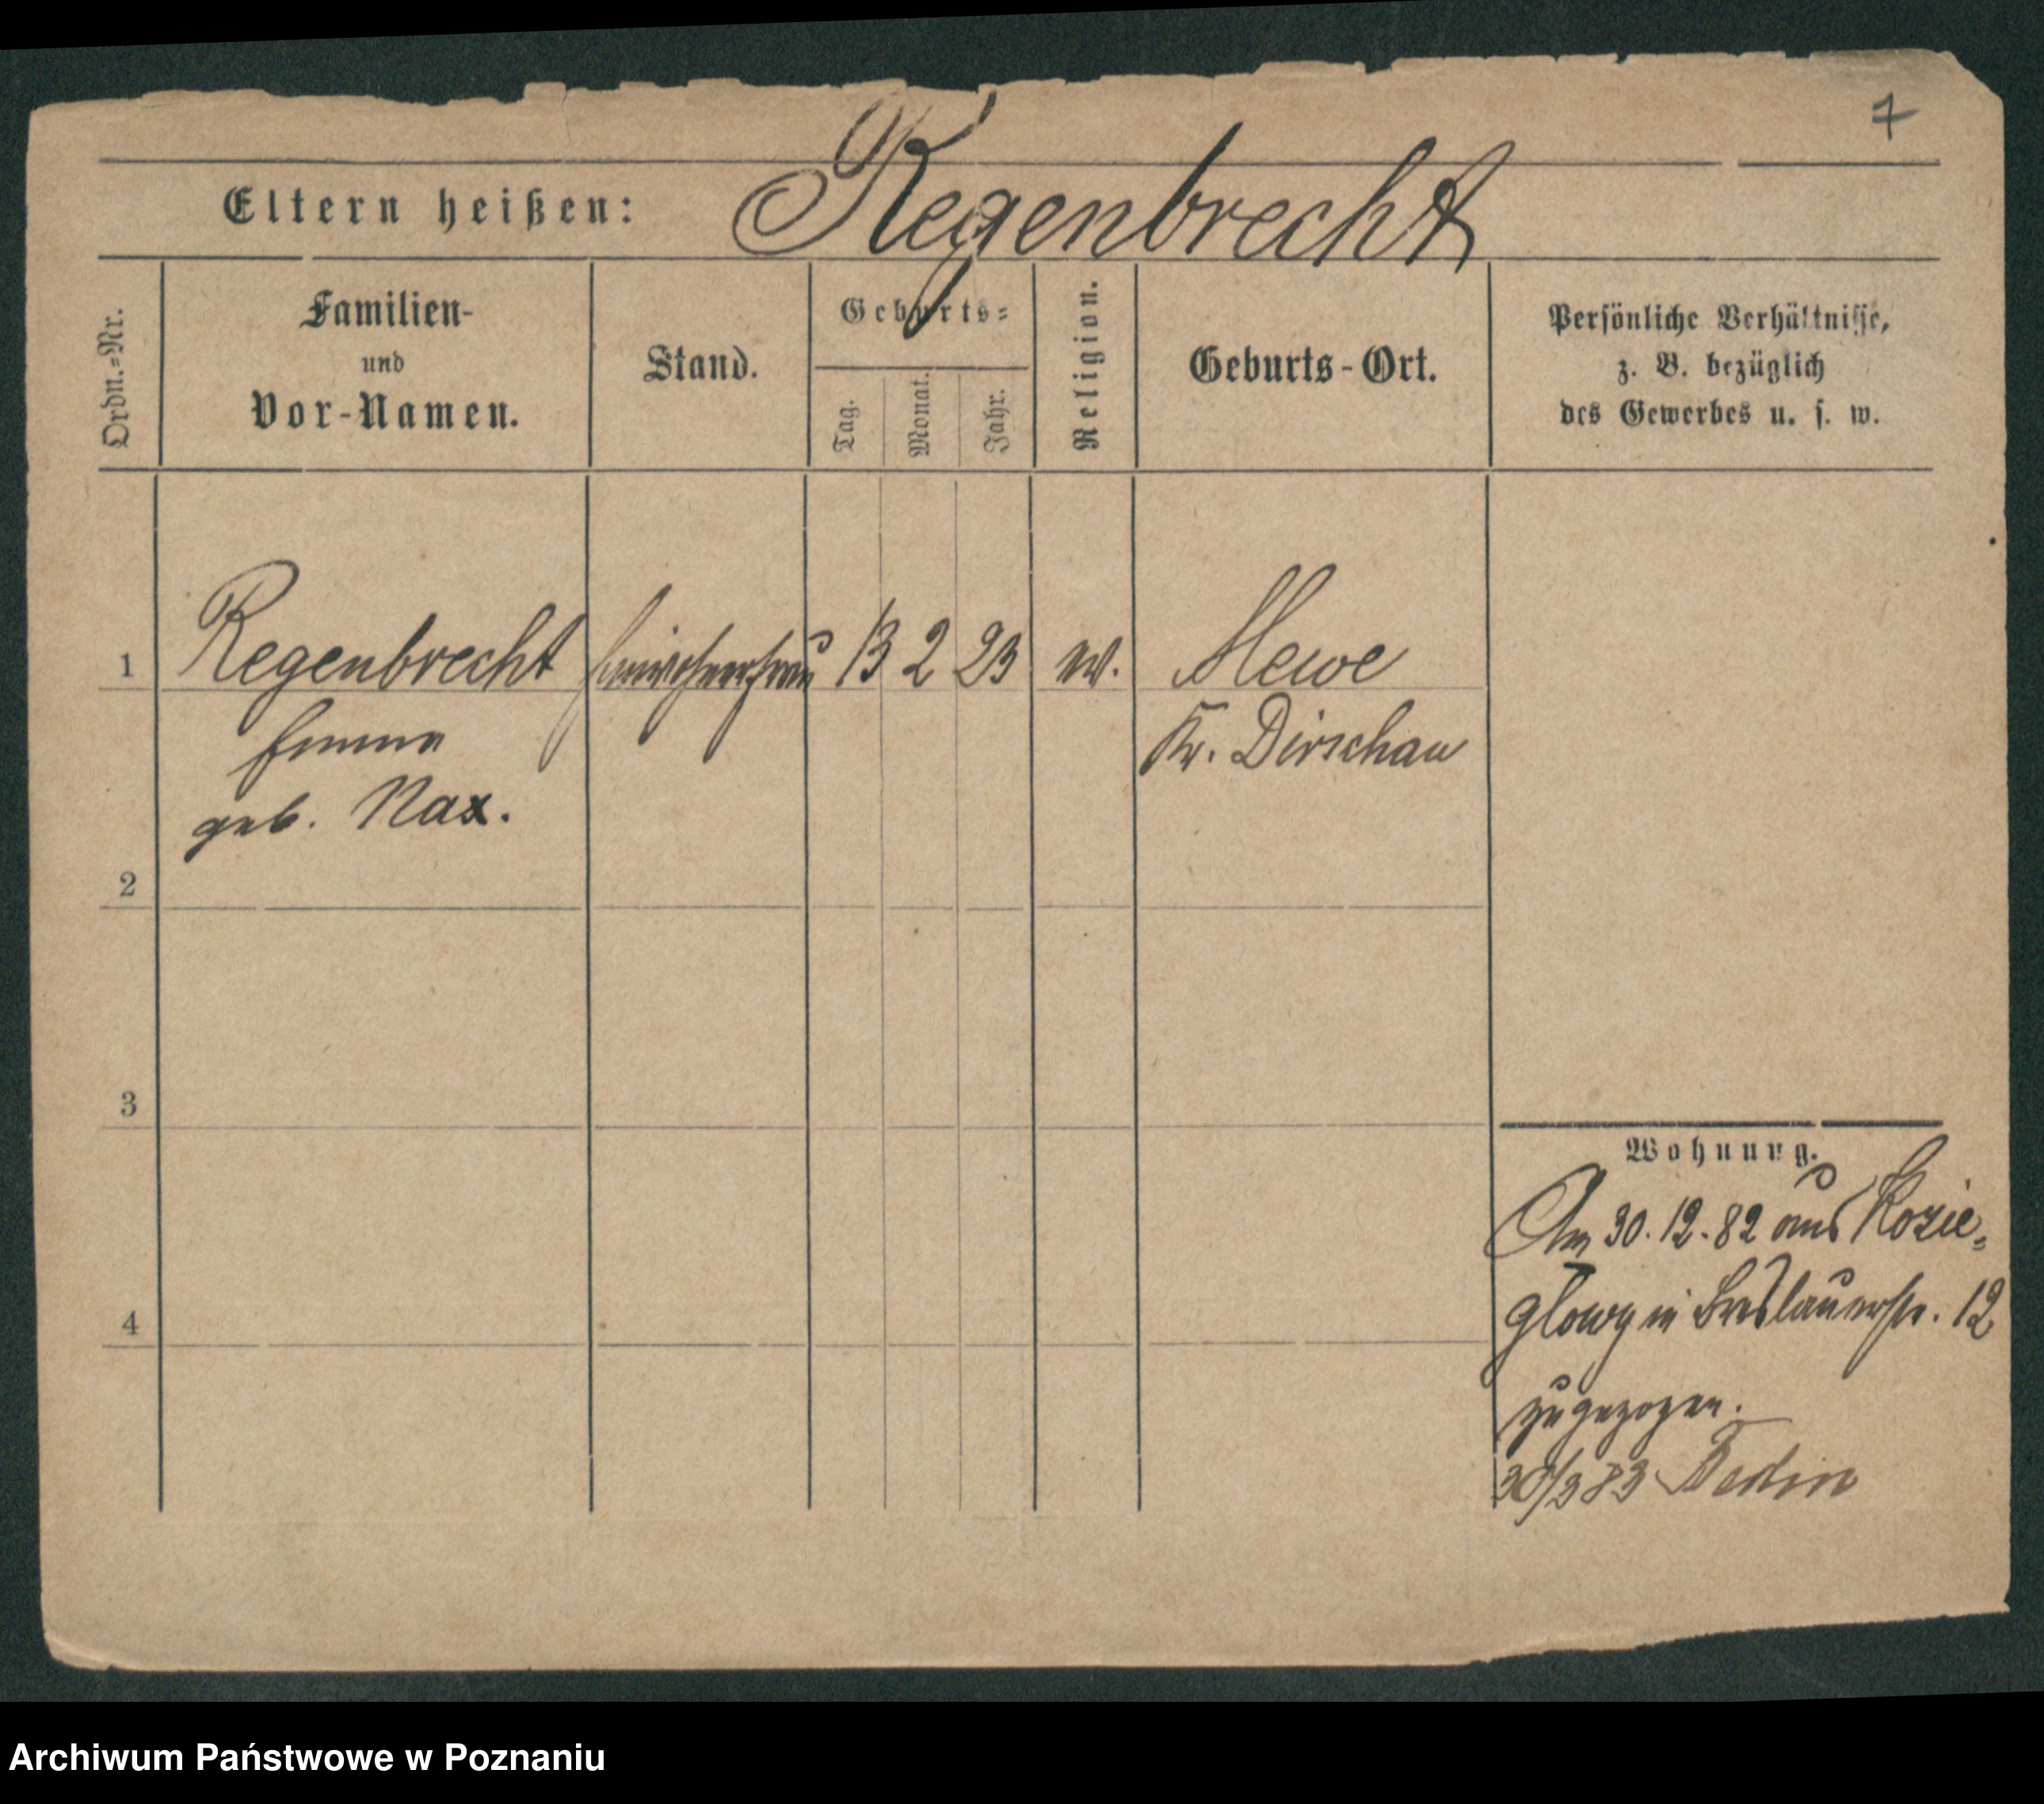 7
Eltern heißen: Regenbrecht
Ordn.=Nr.
Familien-
und
Vor-Namen.
Stand.
Geburts=
Tag.
Monat.
Jahr.
Religion.
Geburts-Ort.
Persönliche Verhältnisse,
z. B. bezüglich
des Gewerbes u. s. w.
1 Regenbrecht 13 2 23 ev. Mewe
Emma Kr. Dirschau
geb. Nax.
2
3
4
Wohnung.
Am 30.12.82 aus Kozie=
glowy in Breslauerstr. 12
zugezogen.
30/3 83 Berlin
Archiwum Państwowe w Poznaniu